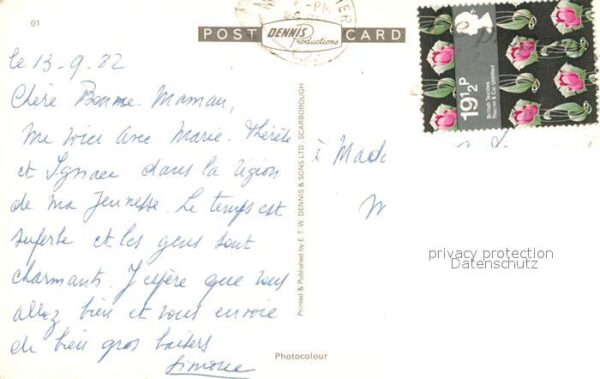 01
POST
DENNIS
Productions
CARD
le 13-9.82
Chère Bonne Maman,
me voici avec Marie-Thérèse
et Ignace dans la région
de ma jeunesse. Le temps est
superbe et les gens sont
charmants. J'espère que vous
allez bien et vous envoie
de bien gros baisers
Simone
Printed & Published by E. T. W. DENNIS & SONS LTD., SCARBOROUGH
Photocolour
à Mada
19½P
British Textiles
privacy protection
Datenschutz